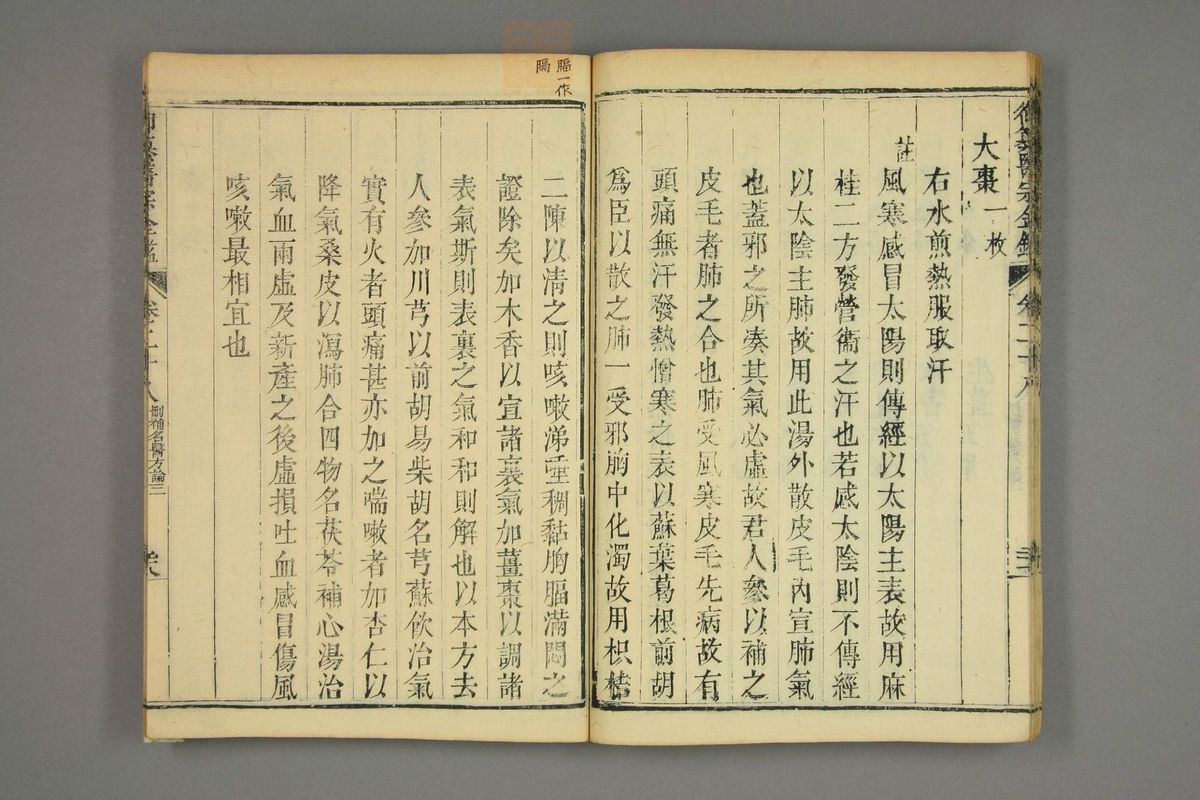 大棗一枚
右水煎熱服取汗
註風寒感冒太陽則傳經以太陽主表故用麻
桂二方發營衞之汗也若感太陰則不傳經
以太陰主肺故用此湯外散皮毛內宣肺氣
也蓋邪之所凑其氣必虛故君人參以補之
皮毛者肺之合也肺受風寒皮毛先病故有
頭痛無汗發熱憎寒之表以蘇葉葛根前胡
爲臣以散之肺一受邪胸中化濁故用枳桔
二陳以淸之則咳嗽涕唾稠黏胸膈滿悶之
證除矣加木香以宣諸裏氣加薑棗以調諸
表氣斯則表裏之氣和和則解也以本方去
人參加川芎以前胡易柴胡名芎蘇飮治氣
實有火者頭痛甚亦加之喘嗽者加杏仁以
降氣桑皮以瀉肺合四物名茯苓補心湯治
氣血兩虛及新產之後虛損吐血感冒傷風
咳嗽最相宜也
膈一作
膈
御纂醫宗金鑑
卷二十八
刪補名醫方論三